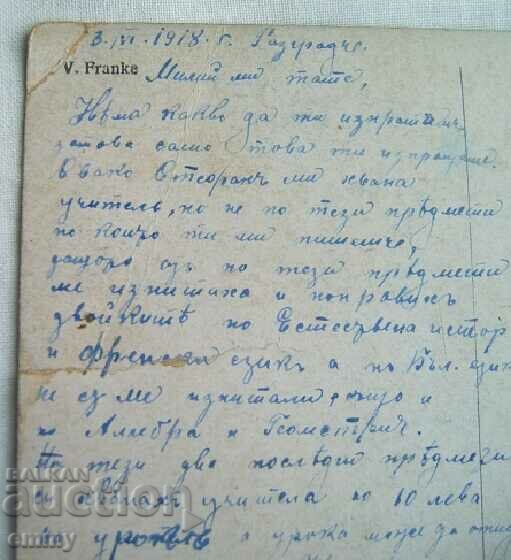 3. VI. 1918 г. Разградъ.
V. Franke
Милий ми тате,
Нѣма какво да ти изпратимъ
затова само това ти изпращаме.
Вако ми хвана
учитель, но не по тези прѣдмети
по които ти ми пишеше,
защото азъ по тези прѣдмети
ме изпитаха и поправихъ
двойкитѣ по Естествена истор
и френски езикъ а по Бъл. езикъ
не сѫ ме изпитали, също и
и Алгебра и Геометрия.
По тези два послѣдни прѣдмета
учителя по 10 лева
урока може да
БАЛКАН
auction
emmy